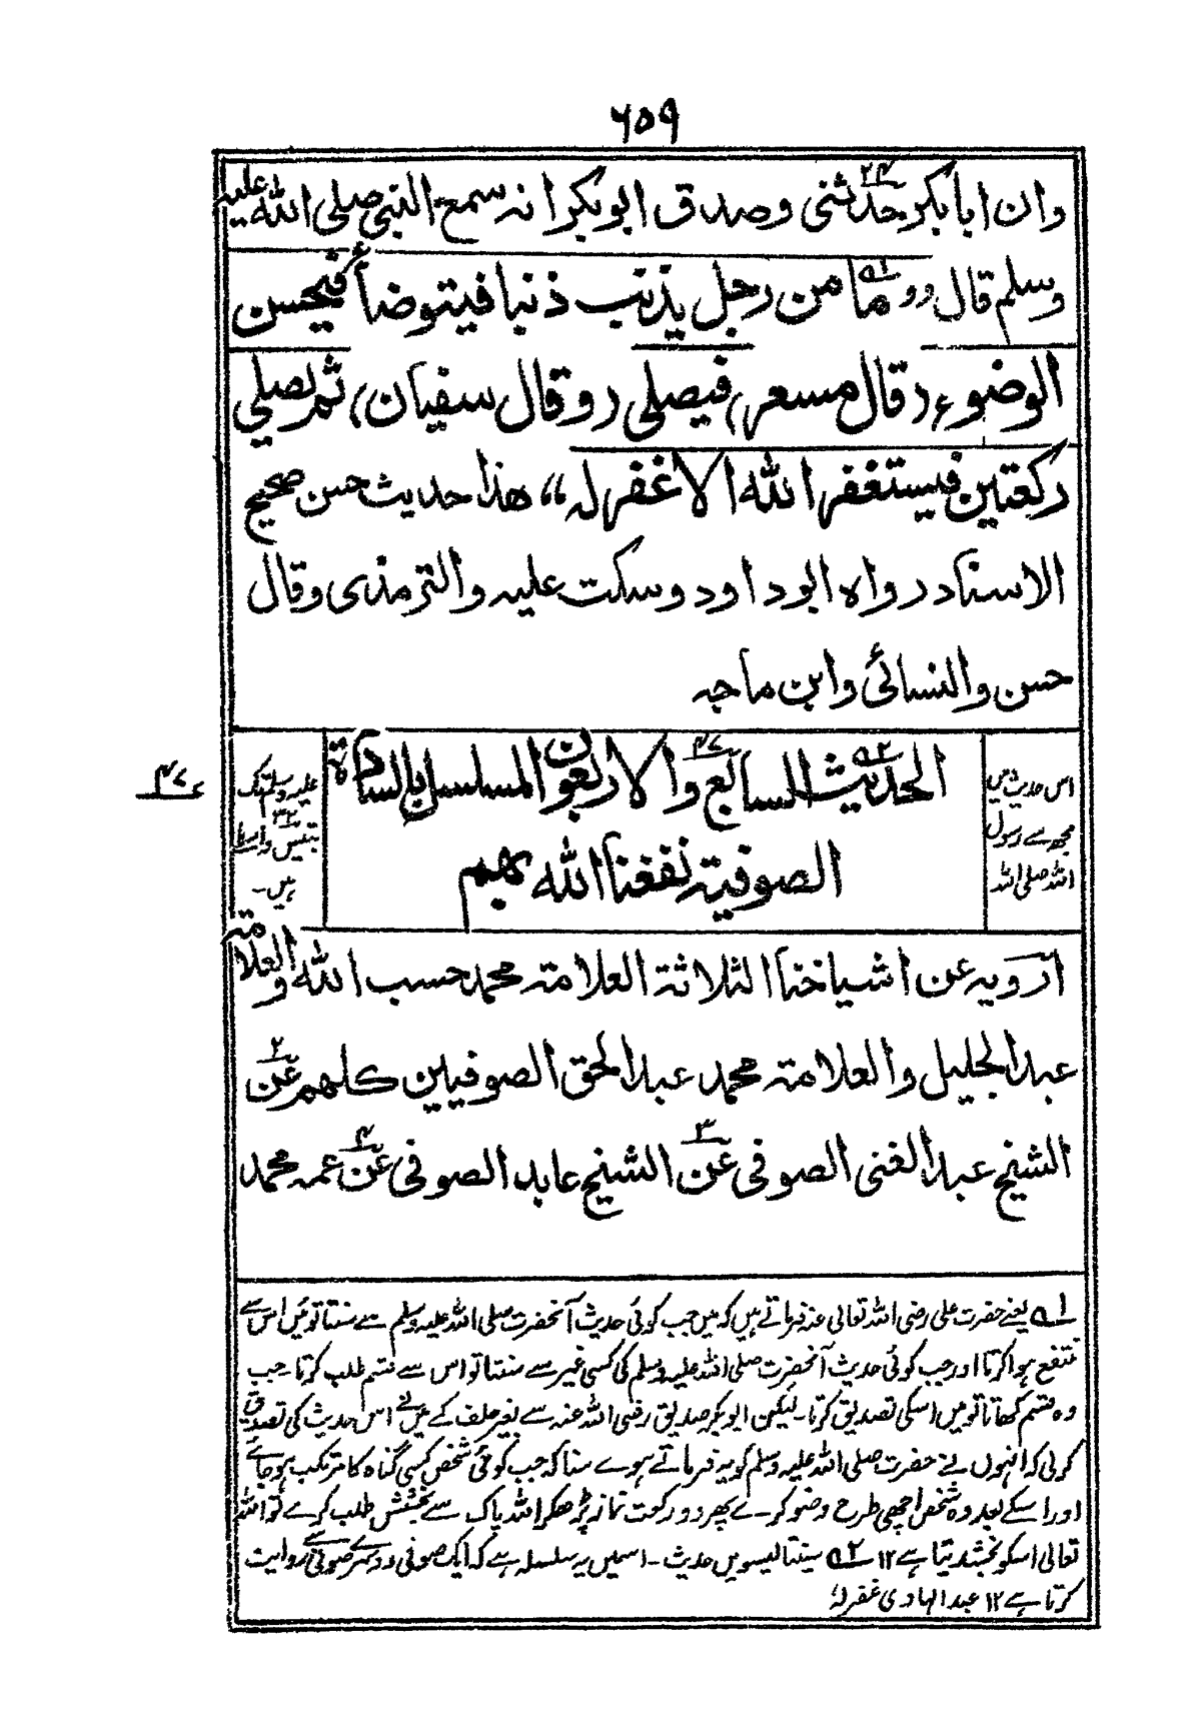 ۶۵۹
وان ابا بکر حدثنی وصدق ابوبکر انہ سمع النبی صلی اللہ علیہ
۲۴
وسلم قال وو ما من رجل یذنب ذنبا فیتوضأ فیحسن
۱ه
الوضوء (قال مسعر) فیصلی (وقال سفیان) ثم یصلی
رکعتین فیستغفر اللہ الا غفر لہ ،، ھذا حدیث حسن صحیح
الاسناد رواہ ابوداود وسکت علیہ والترمذی وقال
حسن والنسائی وابن ماجہ
۴۷
الحدیث السابع والاربعون المسلسل بالسادۃ
۲ه ۴۷
الصوفیۃ نفعنا اللہ بھم
اس حدیث میں
مجھ سے رسول
اللہ صلی اللہ
علیہ وسلم تک
۳۲
بتیس واسطے
ہیں۔
ارویہ عن اشیاخنا الثلاثۃ العلامۃ محمد حسب اللہ والعلامۃ
عبد الجلیل والعلامۃ محمد عبد الحق الصوفیین کلھم عن
۲
الشیخ عبد الغنی الصوفی عن الشیخ عابد الصوفی عن عمہ محمد
۳ ۴
۱ه یعنے حضرت علی رضی اللہ تعالی عنہ فرماتے ہیں کہ میں جب کوئی حدیث آنحضرت صلی اللہ علیہ وسلم سے سنتا تو میں اس سے
منتفع ہوا کرتا اور جب کوئی حدیث آنحضرت صلی اللہ علیہ وسلم کی کسی غیر سے سنتا تو اس سے قسم طلب کرتا۔ جب
وہ قسم کھاتا تو میں اسکی تصدیق کرتا۔ لیکن ابوبکر صدیق رضی اللہ عنہ سے بغیر حلف کے میں نے اس حدیث کی تصدیق
کرلی کہ انہوں نے حضرت صلی اللہ علیہ وسلم کو یہ فرماتے ہوے سنا کہ جب کوئی شخص کسی گناہ کا مرتکب ہوجائے
اور اسکے بعد وہ شخص اچھی طرح وضو کرے پھر دو رکعت نماز پڑھکر اللہ پاک سے بخشش طلب کرے تو اللہ
تعالی اسکو بخشدیتا ہے ۱۲ ۲ه سینتالیسویں حدیث۔ اسمیں یہ سلسلہ ہے کہ ایک صوفی دوسرے صوفی سے روایت
کرتا ہے ۱۲ عبد الہادی غفرلہ